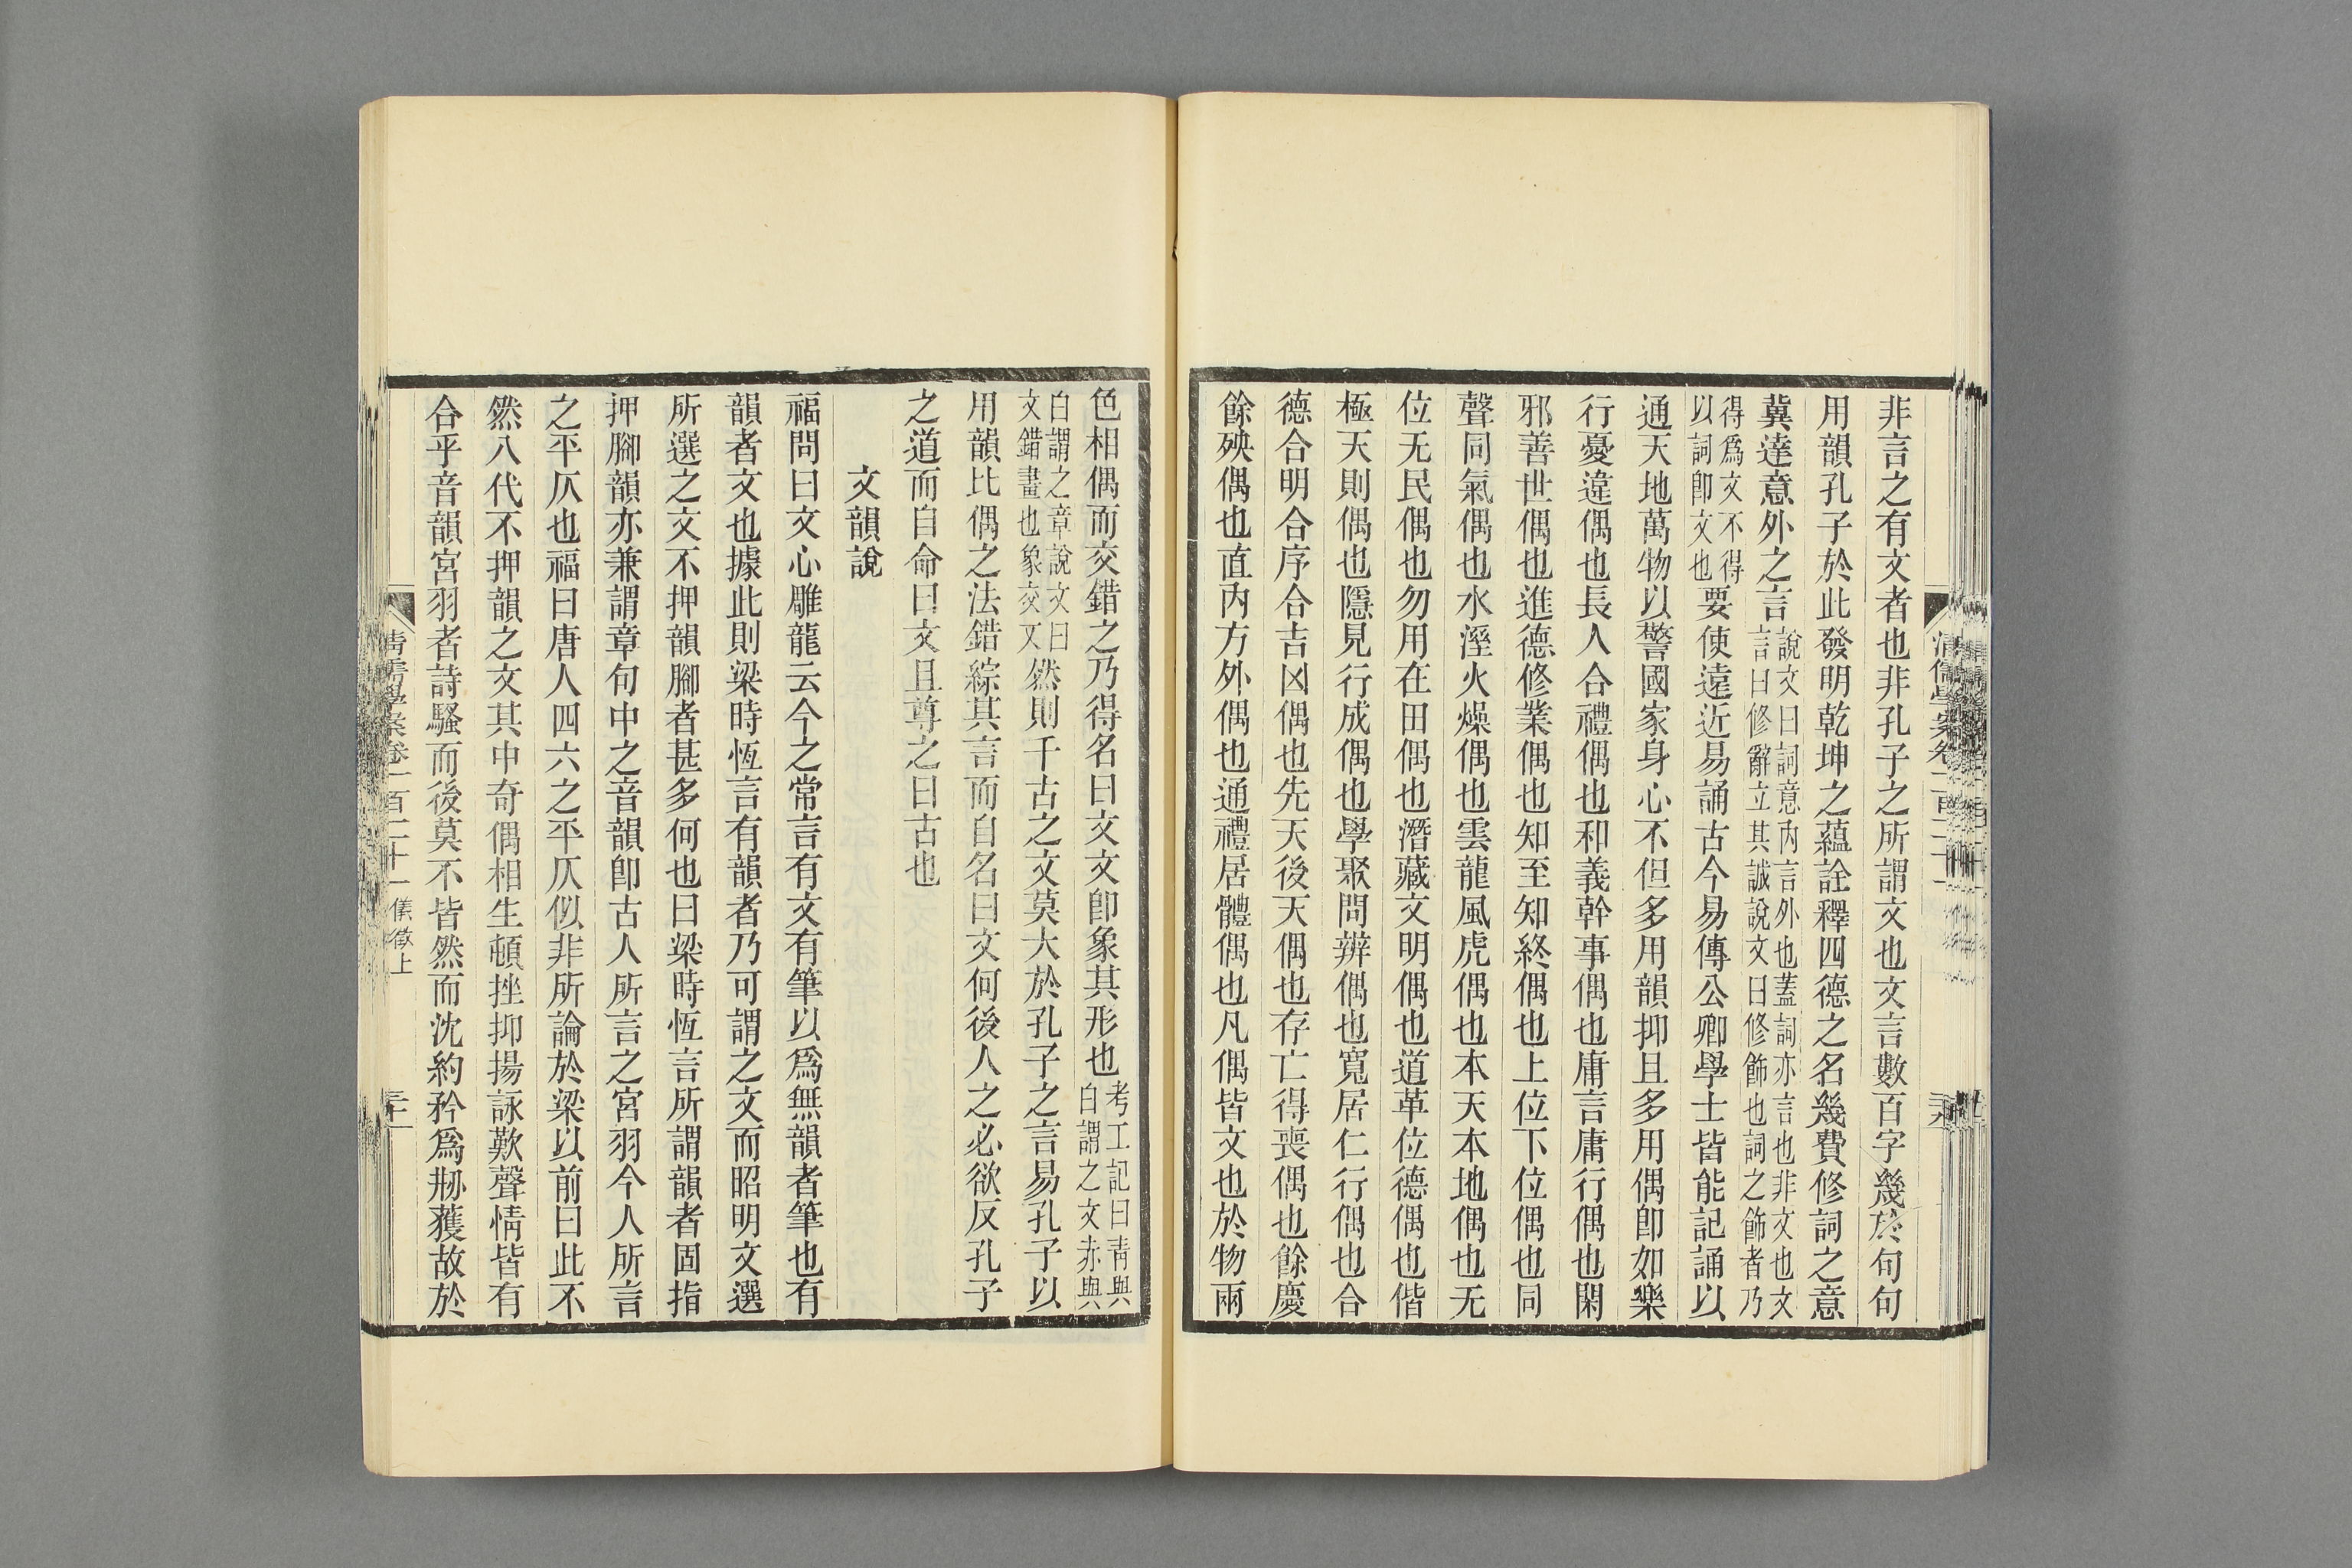 非言之有文者也非孔子之所謂文也文言數百字幾於句句
用韻孔子於此發明乾坤之蘊詮釋四德之名幾費修詞之意
冀達意外之言說文曰詞意內言外也蓋詞亦言也非文也文言曰修辭立其誠說文曰修飾也詞之飾者乃
得爲文不得以詞卽文也要使遠近易誦古今易傳公卿學士皆能記誦以
通天地萬物以警國家身心不但多用韻抑且多用偶卽如樂
行憂違偶也長人合禮偶也和義幹事偶也庸言庸行偶也閑
邪善世偶也進德修業偶也知至知終偶也上位下位偶也同
聲同氣偶也水溼火燥偶也雲龍風虎偶也本天本地偶也无
位无民偶也勿用在田偶也潛藏文明偶也道革位德偶也偕
極天則偶也隱見行成偶也學聚問辨偶也寬居仁行偶也合
德合明合序合吉凶偶也先天後天偶也存亡得喪偶也餘慶
餘殃偶也直內方外偶也通禮居體偶也凡偶皆文也於物兩
色相偶而交錯之乃得名曰文文卽象其形也考工記曰青與白謂之文赤與
白謂之章說文曰文錯畫也象交文然則千古之文莫大於孔子之言易孔子以
用韻比偶之法錯綜其言而自名曰文何後人之必欲反孔子
之道而自命曰文且尊之曰古也
文韻說
福問曰文心雕龍云今之常言有文有筆以爲無韻者筆也有
韻者文也據此則梁時恆言有韻者乃可謂之文而昭明文選
所選之文不押韻腳者甚多何也曰梁時恆言所謂韻者固指
押腳韻亦兼謂章句中之音韻卽古人所言之宮羽今人所言
之平仄也福曰唐人四六之平仄似非所論於梁以前曰此不
然八代不押韻之文其中奇偶相生頓挫抑揚詠歎聲情皆有
合乎音韻宮羽者詩騷而後莫不皆然而沈約矜爲剏獲故於
清儒學案卷一百二十一 儀徵上